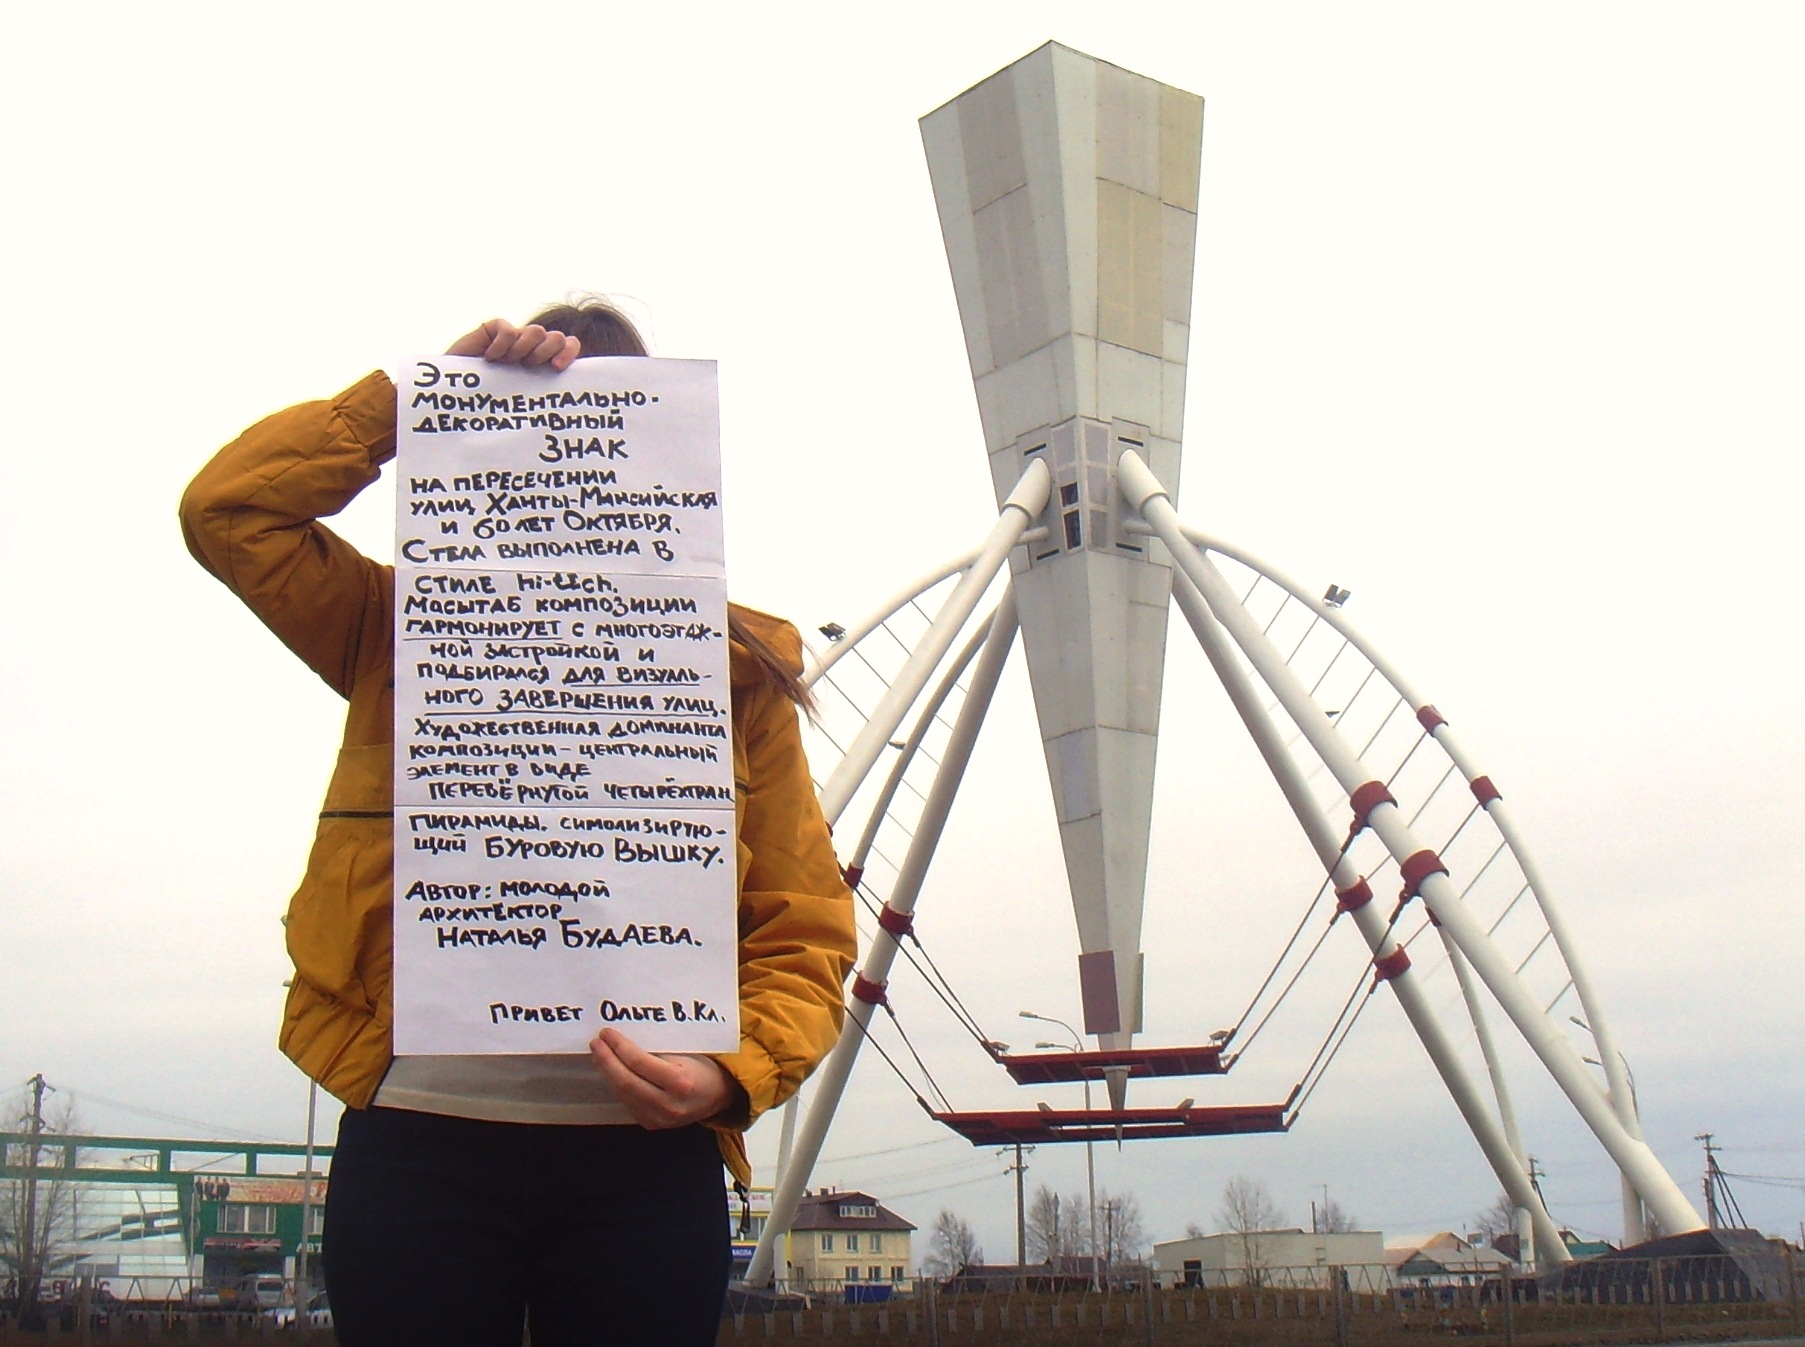 Это
монументально-
декоративный
знак
на пересечении
улиц Ханты-Мансийская
и 60 лет Октября.
Стела выполнена в
стиле hi-tech.
Масштаб композиции
гармонирует с многоэтаж-
ной застройкой и
подбирался для визуаль-
ного завершения улиц.
Художественная доминанта
композиции - центральный
элемент в виде
перевёрнутой четырёхгран
пирамиды, символизирую-
щий буровую вышку.
Автор: молодой
архитектор
Наталья Будаева.
Привет Ольге В. Кл.